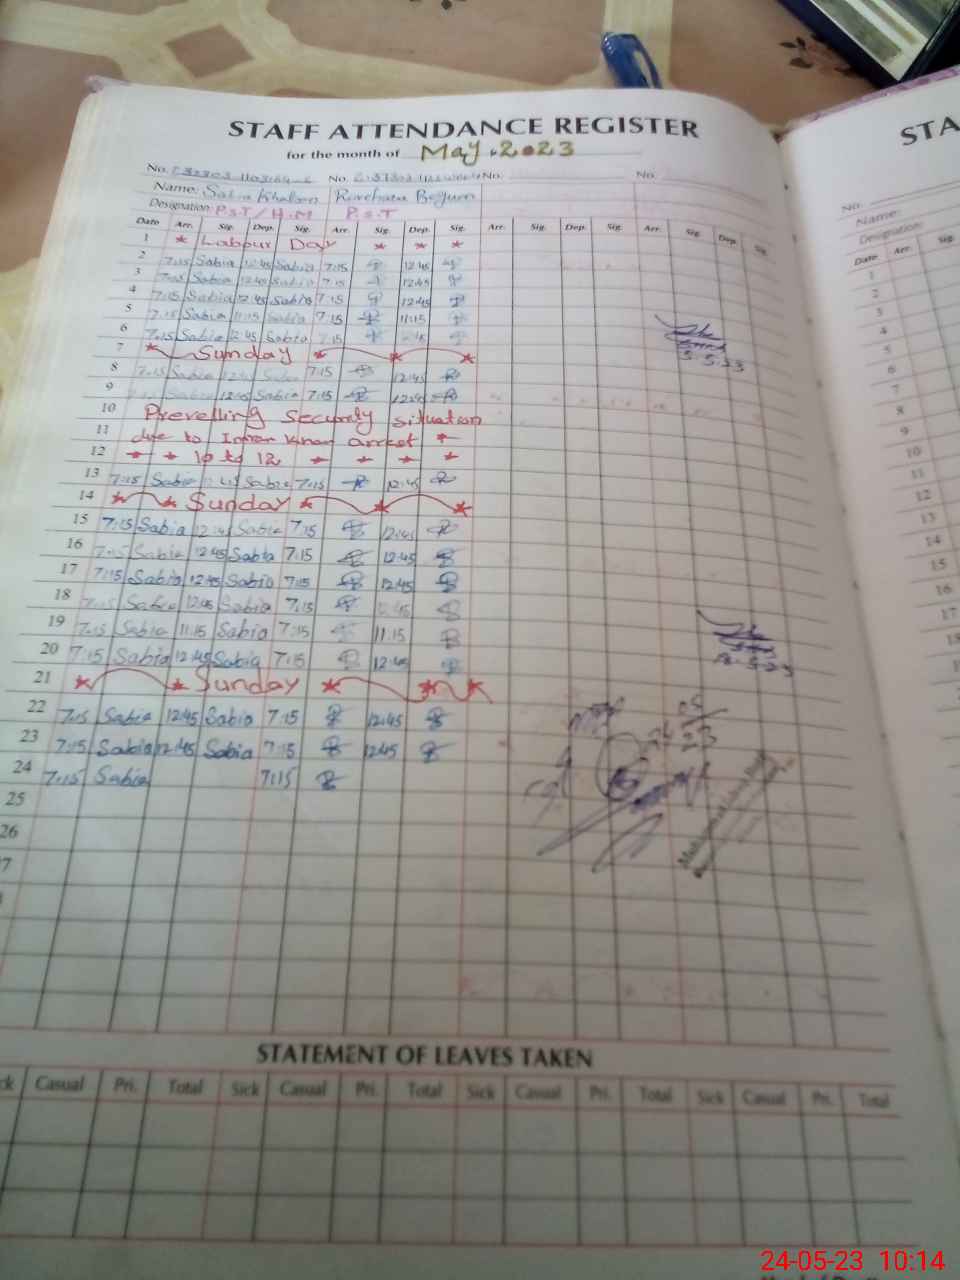 STAFF ATTENDANCE REGISTER
STA
for the month of May. 2023
No. No. No. No. No.
Name: Sabia Khatoon Begum Name:
Designation: P.S.T / H.M P.S.T Designation:
Date Arr. Sig. Dep. Sig. Arr. Sig. Dep. Sig. Arr. Sig. Dep. Sig. Arr. Sig. Dep. Sig. Date Arr. Sig.
1 * Labour Day * * * 1
2 7:15 Sabia 12:45 Sabia 7:15 12:45 2
3 7:15 Sabia 12:45 Sabia 7:15 12:45 3
4 7:15 Sabia 12:45 Sabia 7:15 12:45 4
5 7:15 Sabia 11:15 Sabia 7:15 11:15 5
6 7:15 Sabia 12:45 Sabia 7:15 6
7 * Sunday * * * 5.5.23 7
8 7:15 Sabia 12:45 Sabia 7:15 12:45 8
9 7:15 Sabia 12:45 Sabia 7:15 12:45 9
10 Prevelling Security situation 10
11 due to Imran Khan arrest * 11
12 * * 10 to 12 * * * * 12
13 7:15 Sabia 12:45 Sabia 7:15 12:45 13
14 * * Sunday * * * 14
15 7:15 Sabia 12:45 Sabia 7:15 12:45 15
16 7:15 Sabia 12:45 Sabia 7:15 12:45 16
17 7:15 Sabia 12:45 Sabia 7:15 12:45 17
18 7:15 Sabia 12:45 Sabia 7:15 12:45 18
19 7:15 Sabia 11:15 Sabia 7:15 11:15
20 7:15 Sabia 12:45 Sabia 7:15 12:45
21 * * Sunday * * *
22 7:15 Sabia 12:45 Sabia 7:15 12:45
23 7:15 Sabia 12:45 Sabia 7:15 12:45
24 7:15 Sabia 7:15
25
26
7
STATEMENT OF LEAVES TAKEN
ck Casual Pri. Total Sick Casual Pri. Total Sick Casual Pri. Total Sick Casual Pri. Total
24-05-23 10:14